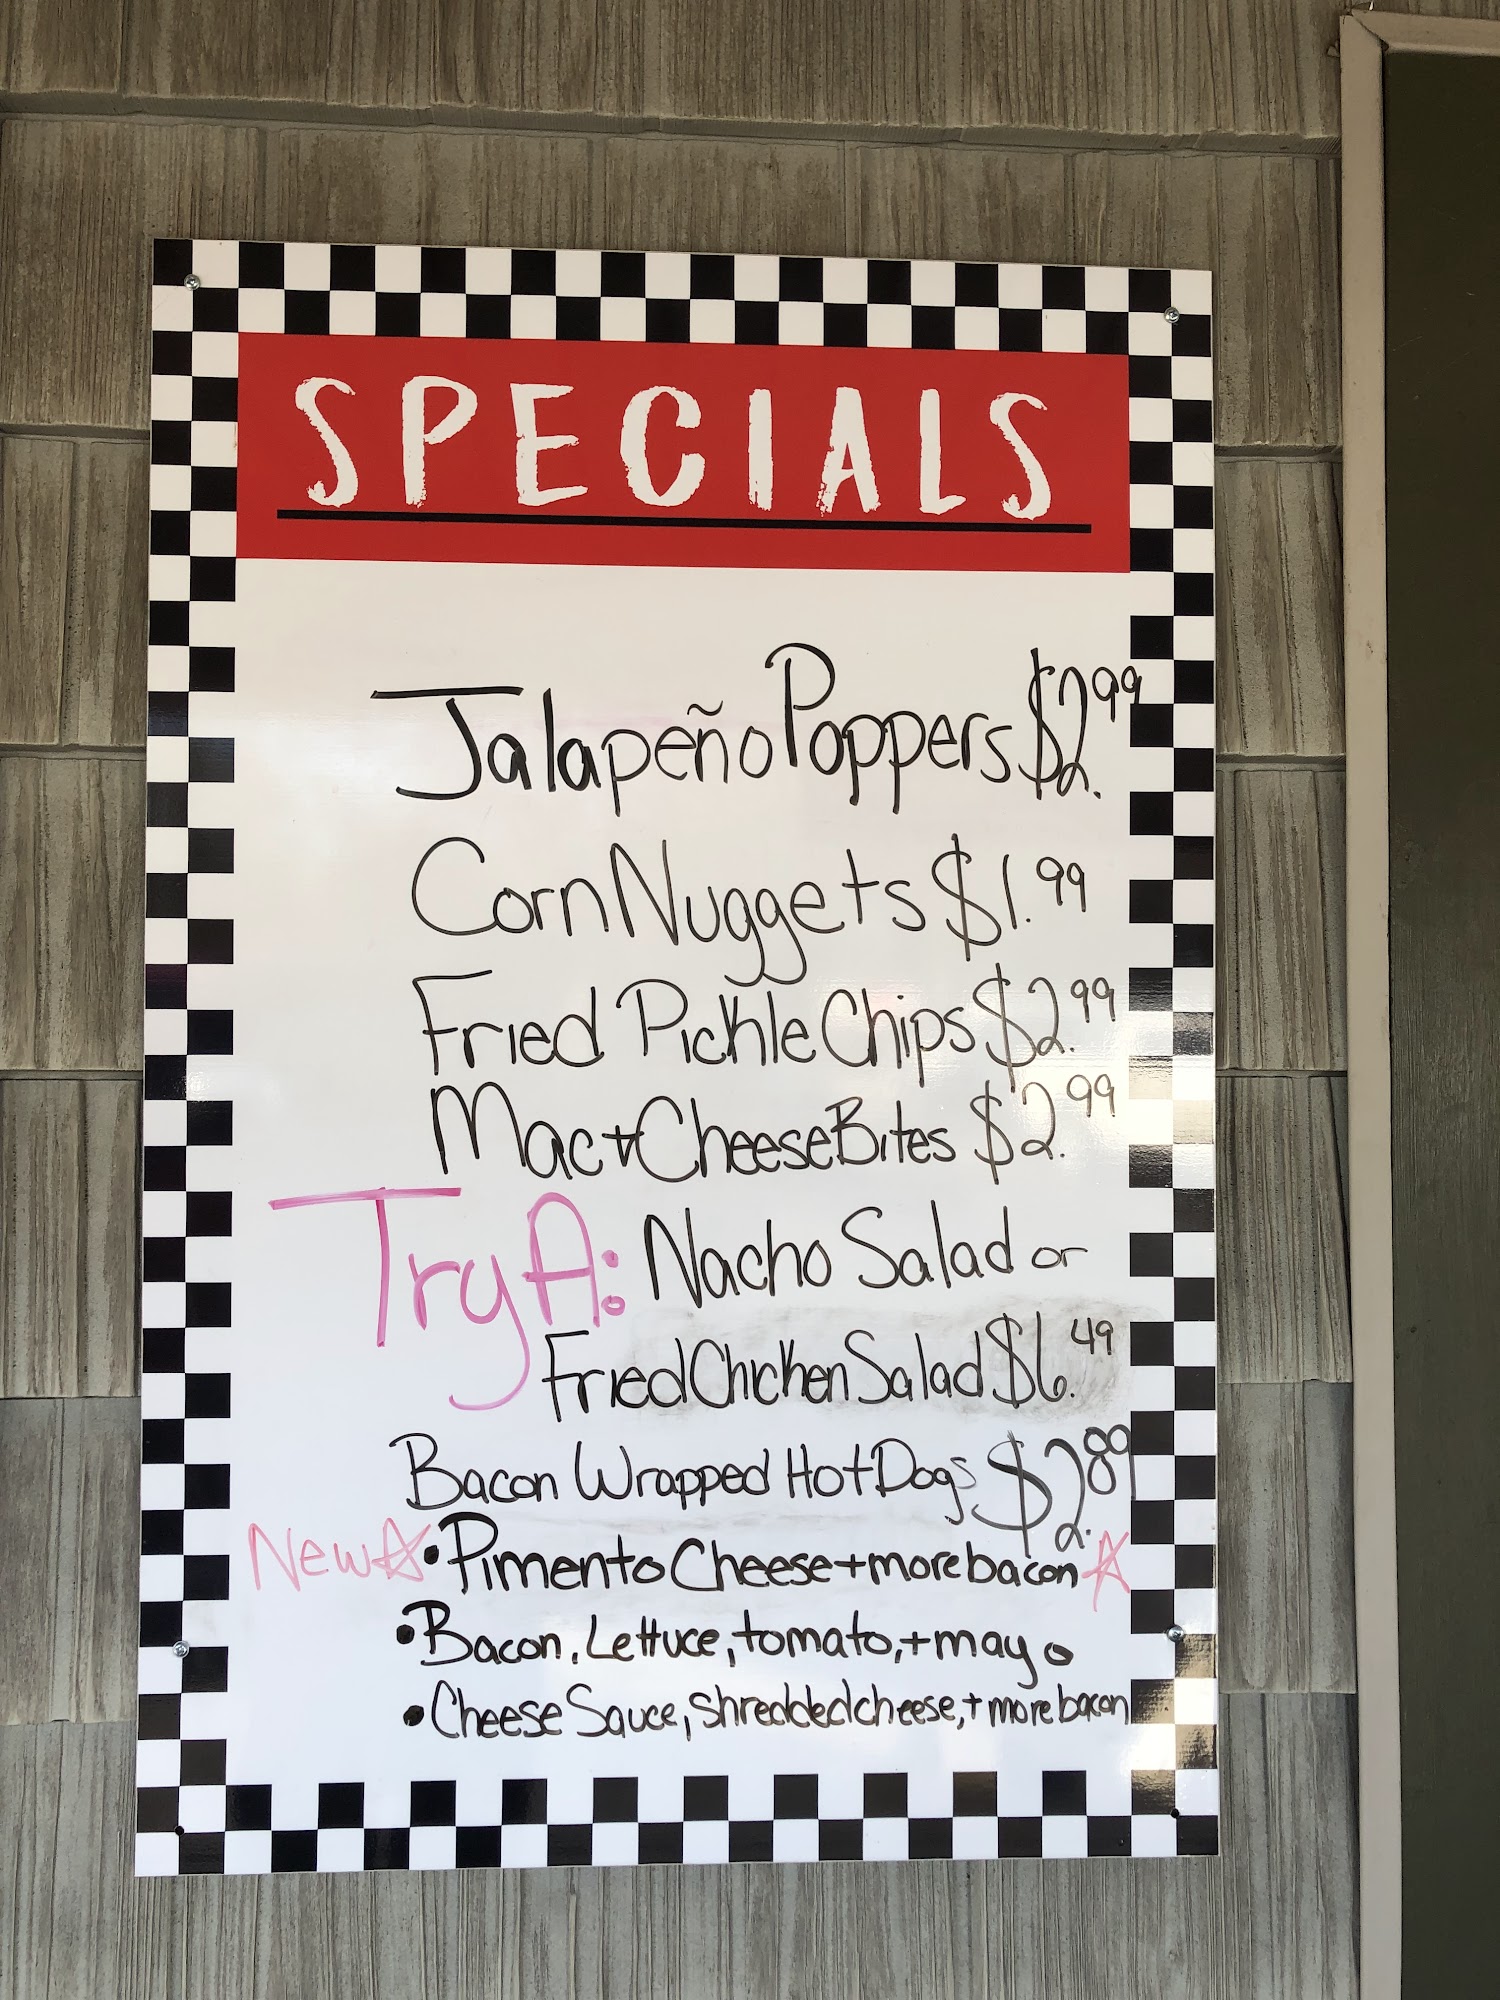 SPECIALS
Jalapeño Poppers $2.99
Corn Nuggets $1.99
Fried Pickle Chips $2.99
Mac + Cheese Bites $2.99
Try A: Nacho Salad or
Fried Chicken Salad $6.49
Bacon Wrapped Hot Dogs $2.89
New☆ • Pimento Cheese + more bacon ☆
• Bacon, Lettuce, tomato, + mayo
• Cheese Sauce, shredded cheese, + more bacon